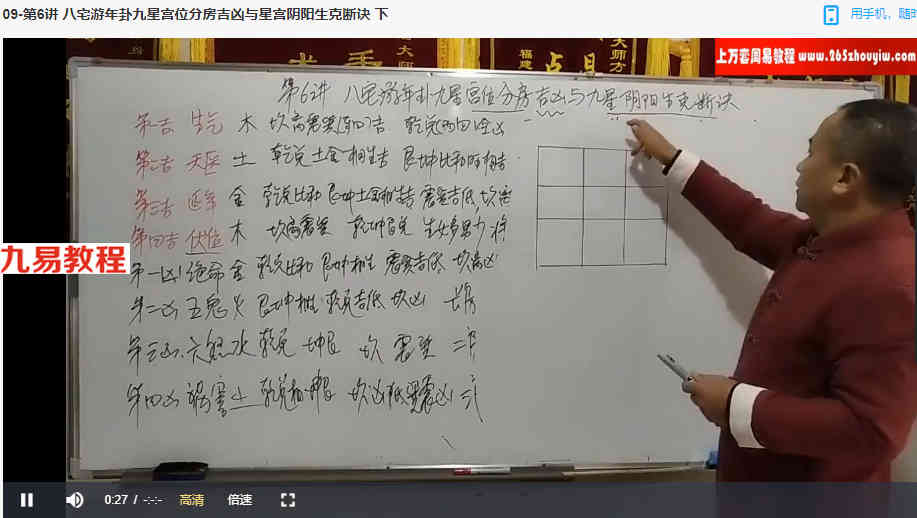 09-第6讲 八宅游年卦九星宫位分房吉凶与星宫阴阳生克断诀 下
用手机，随时
大师方
福建
上万套周易教程 www.265zhouyiw.com
第6讲 八宅游年卦九星宫位分房吉凶与九星阴阳生克断诀
第一吉 生气 木 坎离震巽 四吉 乾兑 凶
第二吉 天医 土 乾兑土金相生吉 艮坤比和 吉
第三吉 延年 金 乾兑比和 艮坤土金相生吉 震巽吉低
第四吉 伏位 木 坎离震巽 乾坤艮兑
九易教程
第一凶 绝命 金 乾兑比和 艮坤相生 震巽吉低 坎离凶
第二凶 五鬼 火 艮坤相生 乾兑吉低 坎凶 长房
第三凶 六煞 水 乾兑 坤艮 坎 震巽 二房
第四凶 祸害 土 乾兑相 坤艮 坎凶低 震巽凶
0:27 / -:-:-
高清
倍速